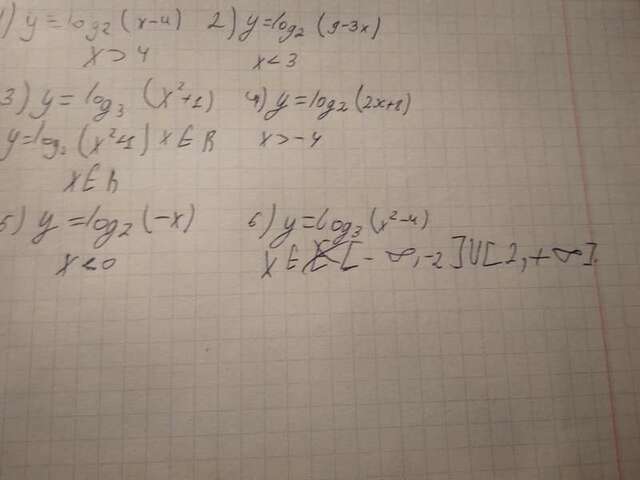 1) y = log₂ (x-4) 2) y = log₂ (9-3x)
x > 4 x < 3
3) y = log₃ (x²+1) 4) y = log₂ (2x+8)
y = log₂ (x²+1) x ∈ R x > -4
x ∈ R
5) y = log₂ (-x) 6) y = log₃ (x²-4)
x < 0 x ∈ [-∞, -2] U [2, +∞].